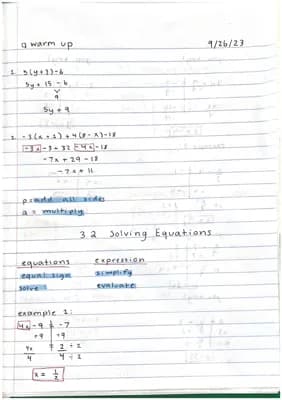 a warm up 9/26/23
1. 5(y+3)-6
5y + 15 - 6
9
5y + 9
2. -3(x+1)+4(8-x)-18
-3x -3+32 -4x -18
-7x + 29 - 18
-7x + 11
p = add all sides
a = multiply
3.2 Solving Equations
equations expression
equal sign simplify
solve evaluate
example 1:
4x - 9 = -7
+9 +9
4x/4 2/4 ÷2 ÷2
x = 1/2